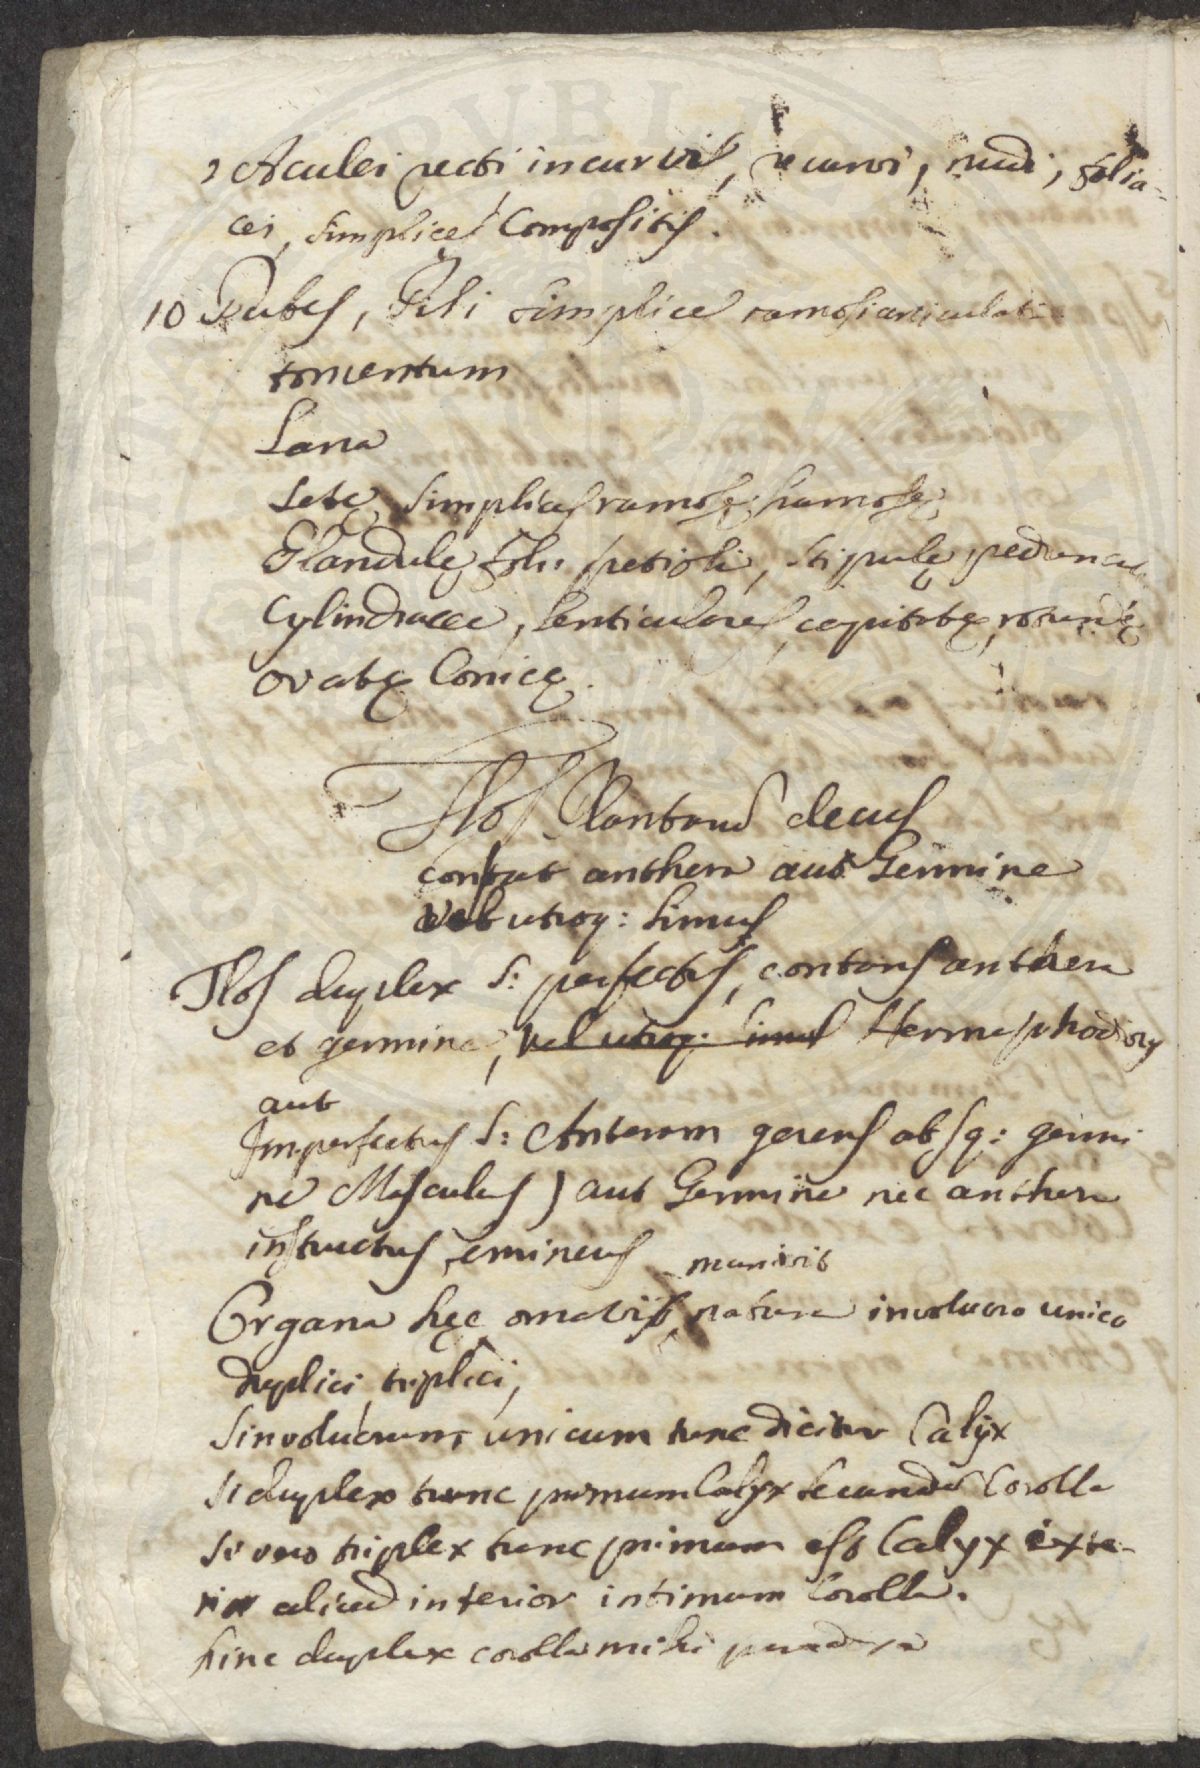 Aculei recti incurvis, recurvi, nudi, folia-
cei, simplices Compositis.
10 Pubes, Pili simplices ramosi articulati
tomentum
Lana
Setę simplices ramosę hamosę
Glandulę folii petioli, stipulę pedunculi
Cylindracee, lenticulares, capitatę, rotundę
ovatę Conicę.
Flos Plantarum decus
constat anthera aut Germine
vel utroq: simul
Flos duplex s: perfectus, constans anthera
et germine, vel utroq: simul Hermaphroditus
aut
Imperfectus s: Anteram gerens absq: germi
ne Masculus) aut Germine nec anthera
instructus, emineus
munivit
Organa hęc natura involucro unico
duplici, triplici,
Si involucrum unicum tunc dicitur Calyx
Si duplex tunc primum Calyx secundum Corolla
Si vero triplex tunc primum est Calyx exte-
rior aliud interior intimum Corolla.
hinc duplex corolla mihi